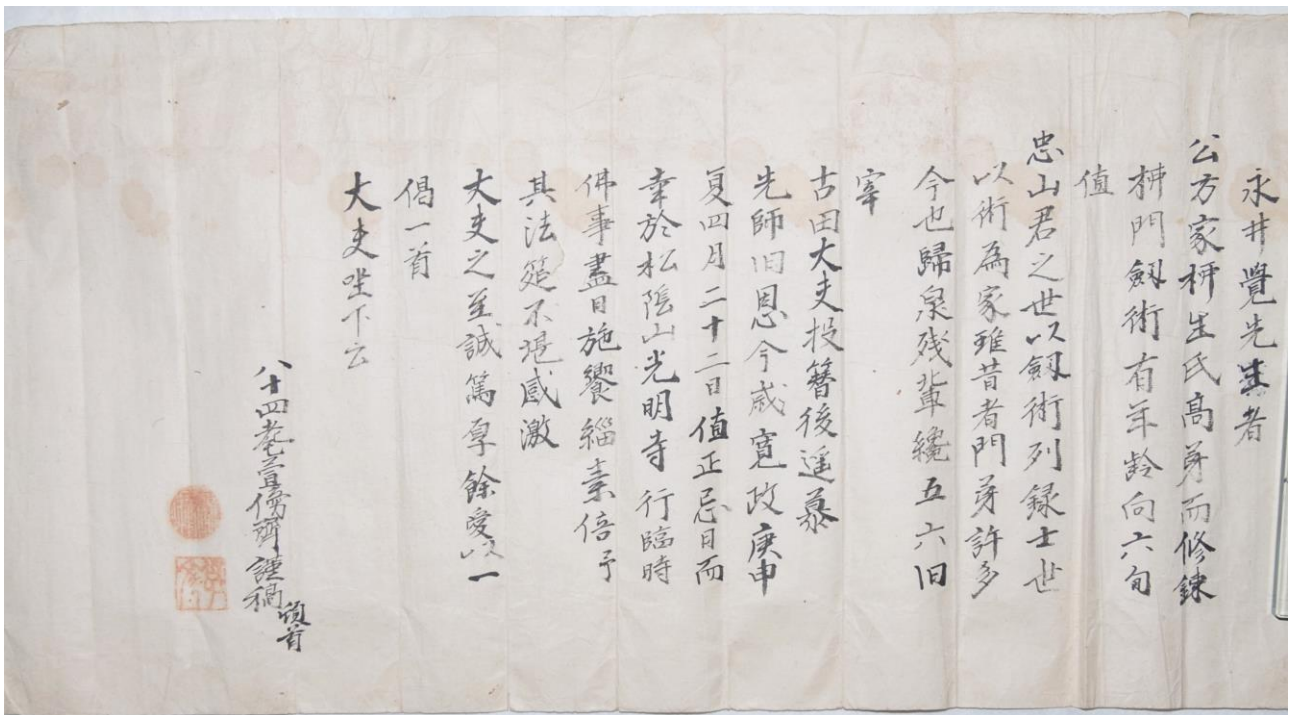 永井覺先生者
公方家柳生氏高弟而修錬
柳門劔術有年齡向六旬
值
忠山君之世以劔術列録士世
以術為家雖昔者門弟許多
今也歸泉残輩纔五六旧
宰
古田大夫投簪後遥慕
先師旧恩今歳寛政庚申
夏四月二十二日值正忌日而
幸於松陰山光明寺行臨時
佛事盡日施饗緇素倍予
其法筵不堪感激
大夫之至誠篤厚餘愛以一
偈一首
大夫坐下云
八十四耄 謹稿
頓首